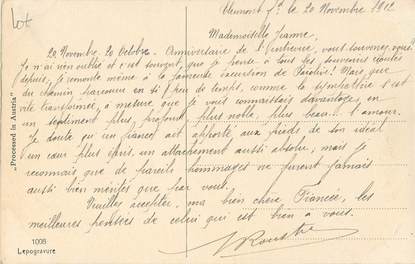 lot
le 20 Novembre 1912
Mademoiselle Jeanne,
20 Novembre. 20 Octobre. Anniversaire de l'entrevue, vous souvenez-vous?
Je n'ai rien oublié et c'est souvent que je pense à tous les souvenirs écoutés
depuis, je remonte même à la fameuse excursion de Mais que
du chemin parcouru en si peu de temps, comme la sympathie s'est
vite transformée, à mesure que je vous connaissais davantage, en
un sentiment plus profond, plus noble, plus beau... l'amour.
Je doute qu'un fiancé ait apporté aux pieds de son idéal
un cœur plus épris, un attachement aussi absolu; mais je
reconnais que de pareils hommages ne furent jamais
aussi bien mérités que par vous.
Veuillez accepter, ma bien chère Fiancée, les
meilleures pensées de celui qui est bien à vous.
"Processed in Austria"
1008
Lepogravure